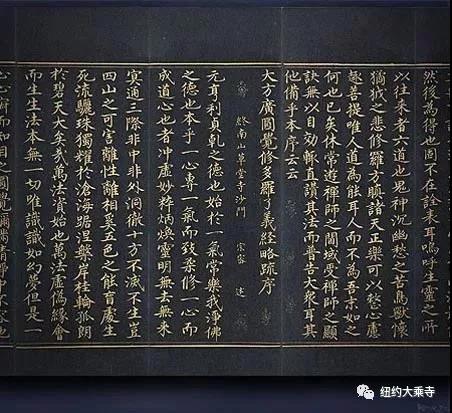 然後為得也固不在詮表耳嗚呼生靈之所
以往來者六道也鬼神沉幽愁之苦鳥獸懷
獝狘之悲修羅方瞋諸天正樂可以整心慮
趣菩提唯人道為能耳人而不為吾末如之
何也已矣休常遊禪師之閫域受禪師之顯
訣無以自効輒直讚其法而普告大衆耳其
他備乎本序云云
大方廣圓覺修多羅了義經略疏序
終南山草堂寺沙門 宗密 述
元亨利貞乾之德也始於一氣常樂我淨佛
之德也本乎一心專一氣而致柔修一心而
成道心也者冲虛妙粹炳煥靈明無去無來
冥通三際非中非外洞徹十方不滅不生豈
四山之可害離性離相奚五色之能盲處生
死流驪珠獨耀於滄海踞涅槃岸桂輪孤朗
於碧天大矣哉萬法資始也萬法虛偽緣會
而生生法本無一切唯識識如幻夢但是一
心心寂而知目之圓覺彌滿清淨中不容他
纽约大乘寺